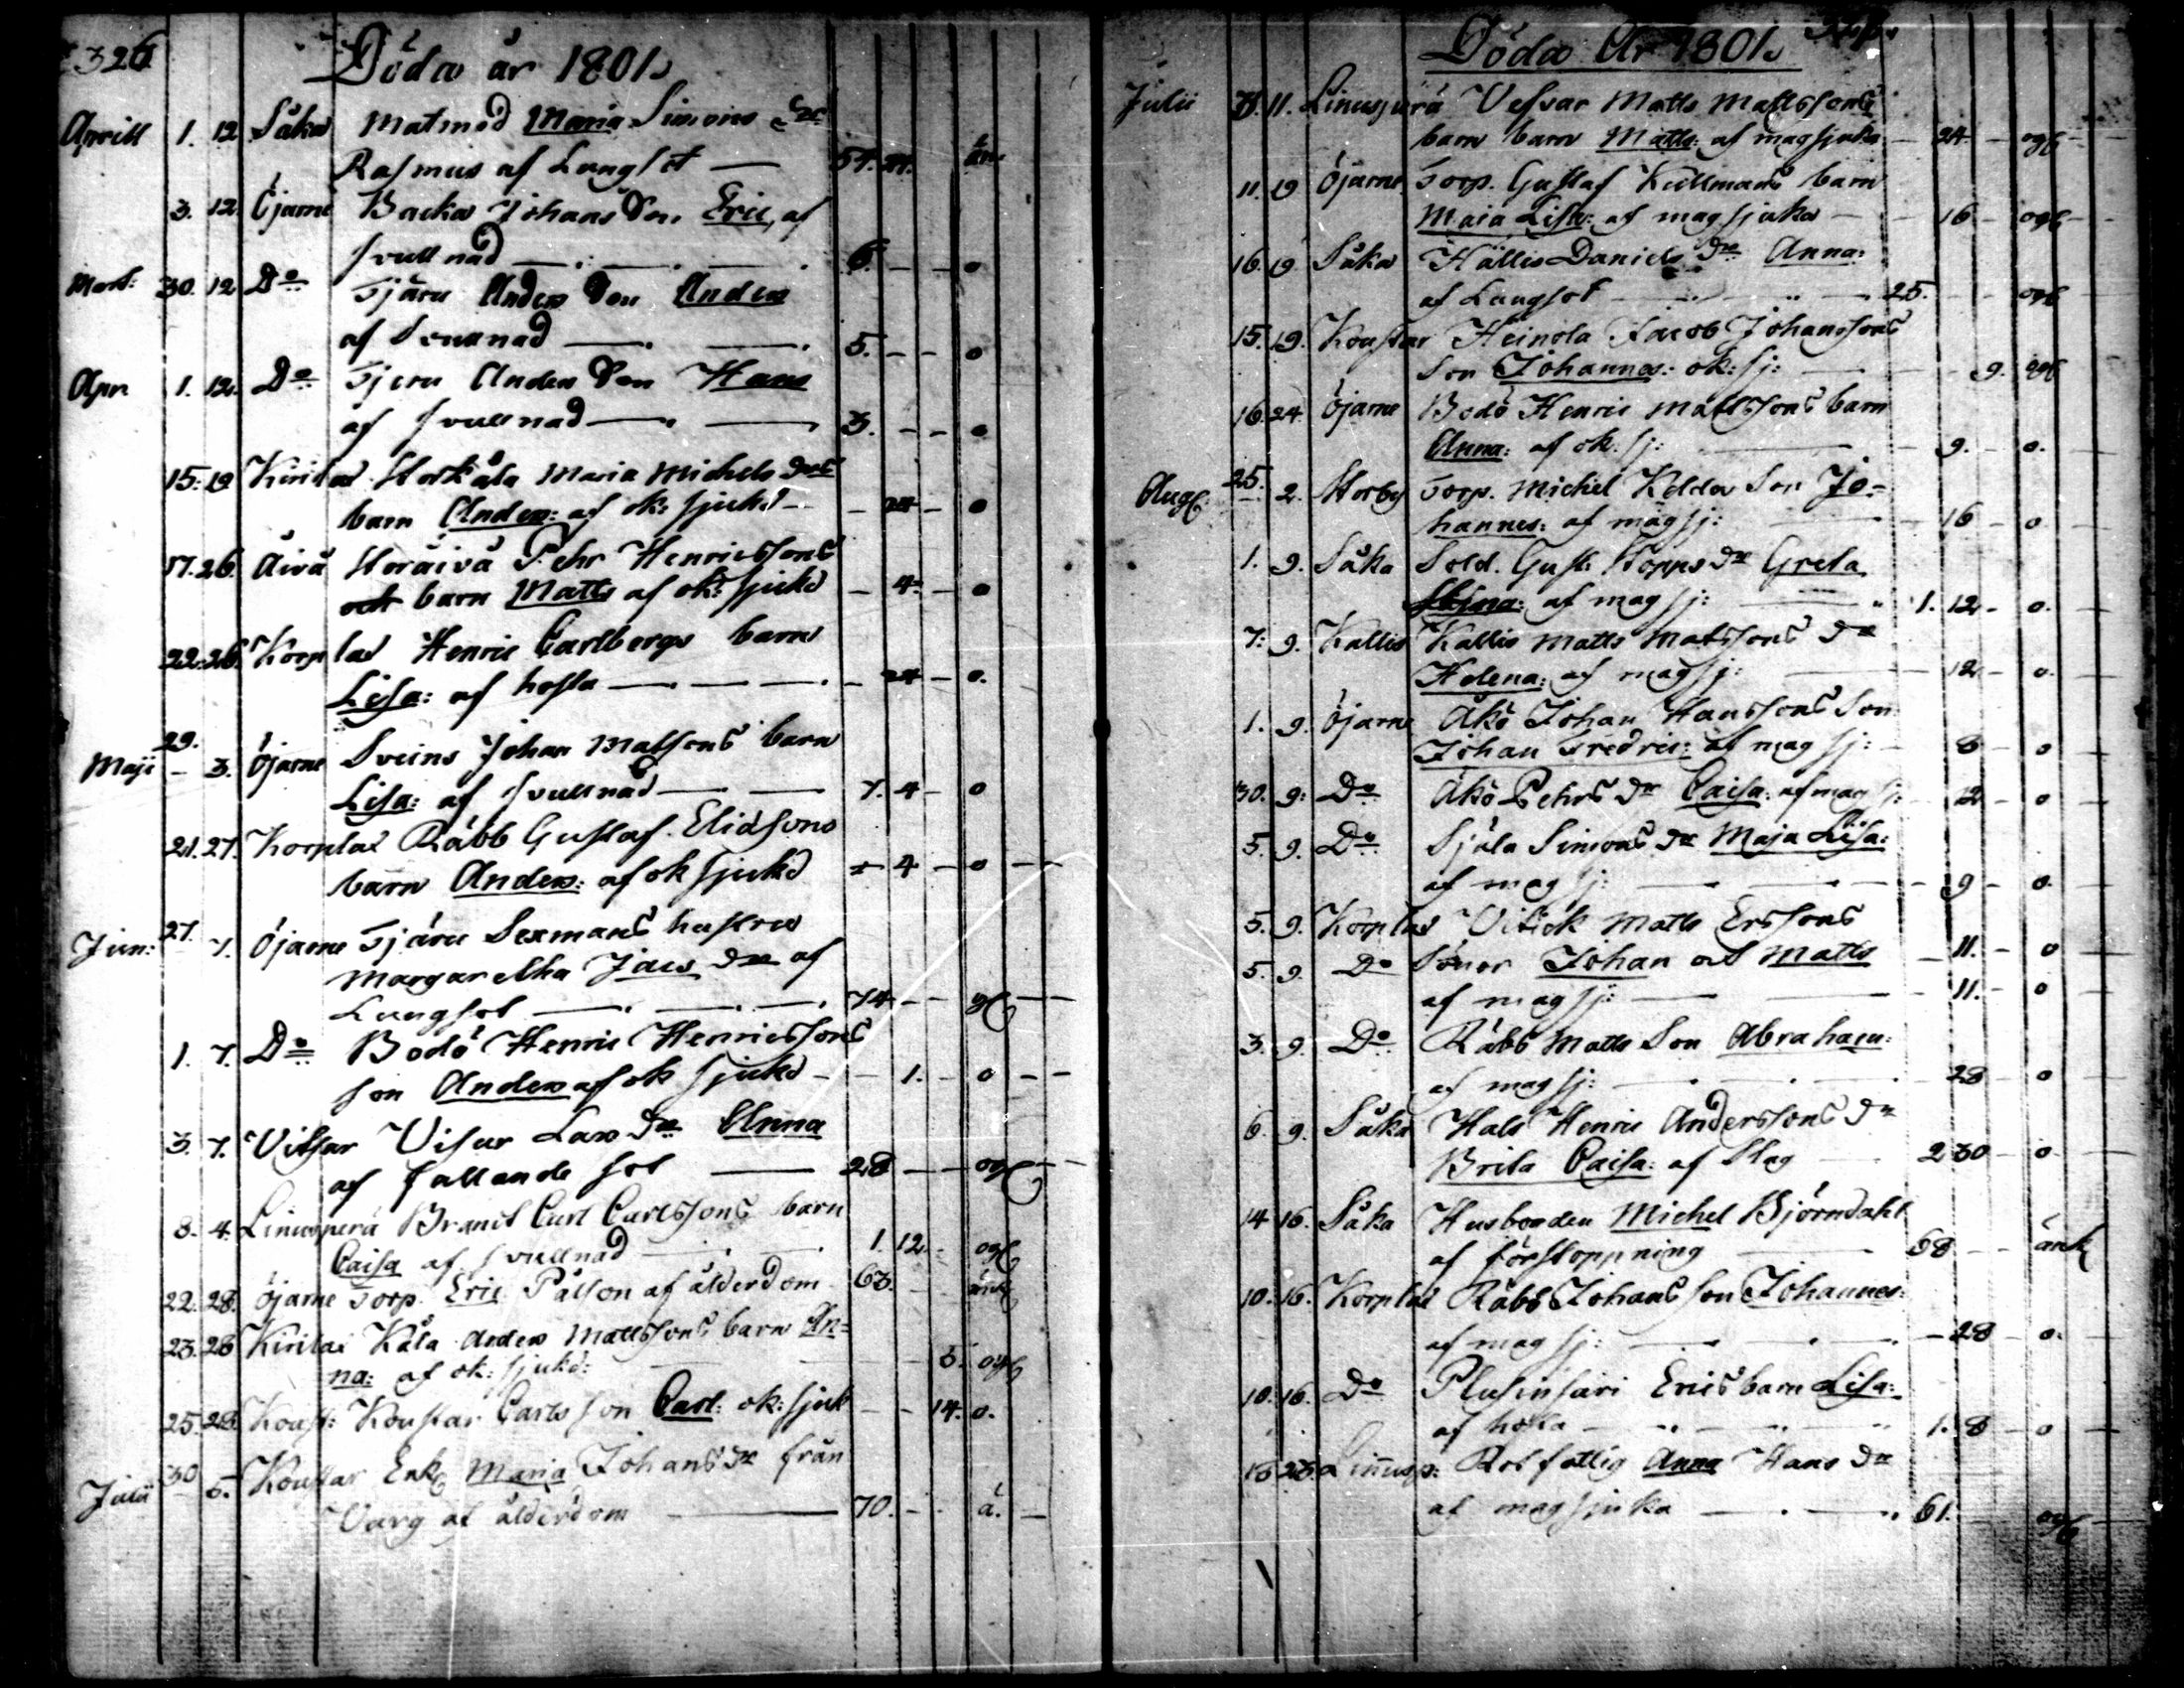 326
Döda år 1801.
Aprill 1. 12 Såka Matmod Maria Simons Dr
Rasmus af Lungsot — 57. än.
3. 12. Öjarne Backa Johans Son Eric, af
svullnad — 6. - - o
Mart: 30. 12 Do Tjäru Anders Son Anders
af Svullnad — 5. - - o
Apr. 1. 12. Do Tjeru Anders Son Hans
af svullnad — 3. - - o
15. 19 Kirilax Storkåla Maria Michels drs
barn Anders: af ok: sjukd - - 24 - o
17. 26. Äivä Storäivä Pehr Henricssons
barn Matts af ok: sjukd - 4 - o
22. 26. Korplax Henric Carlbergs barn
Lisa: af hosta — - 24 - o.
Maji 29. 3. Öjarne Sveins Johan Matsons barn
Lisa: af svullnad — 7. 4 - o
21. 27. Korplax Räbb Gustaf Elidsons
barn Anders: af ok sjukd - 4 - o
Jun: 27. 7. Öjarne Tjäru Sexmans hustru
Margaretha Jacs dr af
Lungsot — 74 - - gl
1. 7. Do Bodö Henric Henricssons
son Anders af ok sjukd - - 1. - o - -
3. 7. Vitsar Visur Lars Dr Anna
af fallande sot — 28 - - ogl
8. 4. Linusperä Brandt Carl Carlssons barn
Caisa af svullnad 1. 12. - ogl
22. 28. Öjarne Torp. Eric Pålson af ålderdom 63. änk
23. 28 Kirilax Kåla Anders Mattssons barn An-
na: af ok: sjukd: 5. ogl
25. 28. Koust: Koustar Carls son Carl: ok: sjuk - - 14. o.
Julii 30 5. Koustar Enk Maria Johans Dr från
Varg af ålderdom — 70. - - ä. -
Döda År 1801.
Julii 11. Linusperä Vesvar Matts Mattssons
barn barn Matts: af magsjuka - 24 - ogl
11. 19 Öjarne Torp. Gustaf Kullmans barn
Maia Lisa: af magsjuka - 16 - ogl
16. 19 Såka Hälles Daniels Dr Anna:
af Lungsot — 25. ogl
15. 19. Koustar Heinola Jacob Johanssons
Son Johannes: ok: sj: — 9. ogl
16. 24. Öjarne Bodö Henric Mattssons barn
Anna: af ok. sj: — 9. - o.
Aug: 25. 2. Storby Torp. Michel Keldor Son Jo-
hannes: af magsj: 16 - o.
1. 9. Såka Sold. Gust: Hopps Dr Greta
Stina: af magsj: — 1. 12 - o.
7. 9. Kallis Kallis Matts Matssons Dr
Helena: af magsj: — 12 - o.
1. 9. Öjarne Åkö Johan Hanssons Son
Johan Fredric: af magsj: - 8 - o
30. 9. Do Åkö Pehrs Dr Caisa: af magsj: - 12 - o
5. 9. Do Sjåla Simons Dr Maja Lisa:
af magsj: — 9 - o.
5. 9. Korplax Vitick Matts Erssons
5. 9. Do Söner Johan och Matts — 11. - o
af magsj: — 11. - o
3. 9. Do Räbb Matts Son Abraham:
af magsj: 28 - o
6. 9. Såka Hals Henric Anderssons Dr
Brita Caisa: af Slag — 2 30 - o -
14 16. Såka Husbonden Michel Björndahl
af förstoppning — 68 - - änk
10. 16. Korplax Räbb Johans son Johannes:
af magsj: — 28 - o.
10. 16. Do Plusinsäri Erics barn Lisa:
af hosta — 1. 8 - o
23. Linusp: Rotfattig Anna Hans Dr
af magsjuka — 61. ogl